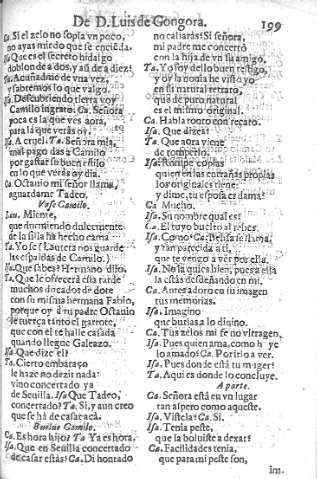 De D. Luis de Gongora. 199
Ca. Si el zelo no sopla vn poco,
no ayas miedo que se encieda.
Isa. Que es el secreto hidalgo
doblon de a dos, y aũ de a diez?
Ta. Acuñadme de vna vez,
y sabremos lo que valgo.
Isa. Descubriendo tierra voy
Camilo ingrato. Ca. Señora
poca es la que ves aora,
para la que verás oy.
Isa. A cruel. Ta. Señora mia,
mal pago das a Camilo
por gastar su buen estilo
en lo que verás oy dia.
Ca. Octauio mi señor llama,
aguardame Tadeo.
Vase Camilo.
Lau. Miente,
que durmiendo dulcemente
de la silla ha hecho cama
Ta. Yo se (Laureta nos guarde
las espaldas de Camilo)
Isa. Que sabes? Hermano dilo.
Ta. Que le ofrecerá esta tarde
muchos ducados de dote
con su misma hermana Fabio,
porque oy à tu padre Octauio
de fuerça tanto el garrote,
que con el te halle casada
quando llegue Galeazo.
Isa. Que dize el?
Ta. Cierto embaraço
le haze no dezir nada:
vino concertado ya
de Seuilla. Isa. Que Tadeo,
concertado? Ta. Si, y aun creo
que se há de casar acá.
Buelue Camilo.
Ca. Es hora hijo? Ta. Ya es hora.
Isa. Que en Seuilla concertado
de casar estás? Ca. Di honrado
no callarás? Si señora,
mi padre me concertó
con la hija de vn su amigo.
Ta. Yo soy dello buen testigo,
y oy la nouia he visto yo
en su natural retrato,
que de puro natural
es el mismo original.
Ca. Habla tonto con recato.
Isa. Que dize?
Ta. Que aora viene
de romperlo.
Isa. Rompe copias
quien en las entrañas propias
los originales tiene:
y dime, tu esposa es dama?
Ca. Mucho.
Isa. Su nombre qual es?
Ca. El tuyo buelto al rebes.
Isa. Como? Ca. Belisa se llama,
y tan parecida a ti,
que te vengo a ver por ella.
Isa. No la quies bien, pues a ella
la estás desdeñando en mi.
Ca. Antes adoro en su imagen
tus memorias.
Isa. Imagino
que burlas a lo diuino.
Ca. Tus zelos mi fe no vltragen.
Isa. Pues quien ama, como h ye
lo amado? Ca. Por ir a ver.
Isa. Pues donde está tu muger?
Ta. Aqui es donde lo concluye.
A parte.
Ca. Señora está en vn lugar
tan aspero como aqueste.
Isa. Vistela? Ca. Si.
Isa. Tenia peste,
que la boluiste a dexar?
Ca. Facilidades tenia,
que para mi peste son,
im-